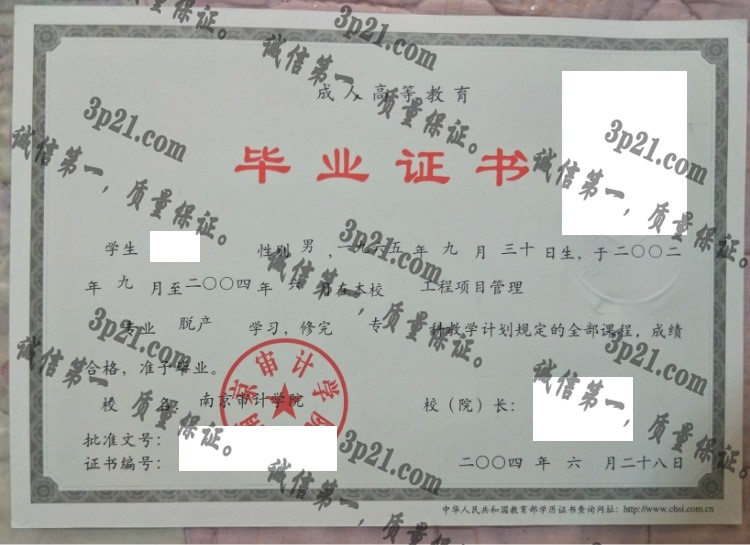 成人高等教育
毕业证书
学生 性别 男，一九六五年九月三十日生，于二〇〇二
年九月至二〇〇四年六月在本校 工程项目管理
专业 脱产 学习，修完 专 科教学计划规定的全部课程，成绩
合格，准予毕业。
校 名：南京审计学院 校（院）长：
批准文号：
证书编号： 二〇〇四年六月二十八日
中华人民共和国教育部学历证书查询网址：http://www.chsi.com.cn
京审计学
3p21.com
诚信第一，质量保证。
3p21.com
诚信第一，质量保证。
3p21.com
诚信第一，质量保证。
3p21.com
诚信第一，质量保证。
3p21.com
诚信第一，质量保证。
3p21.com
诚信第一，质量保证。
3p21.com
诚信第一，质量保证。